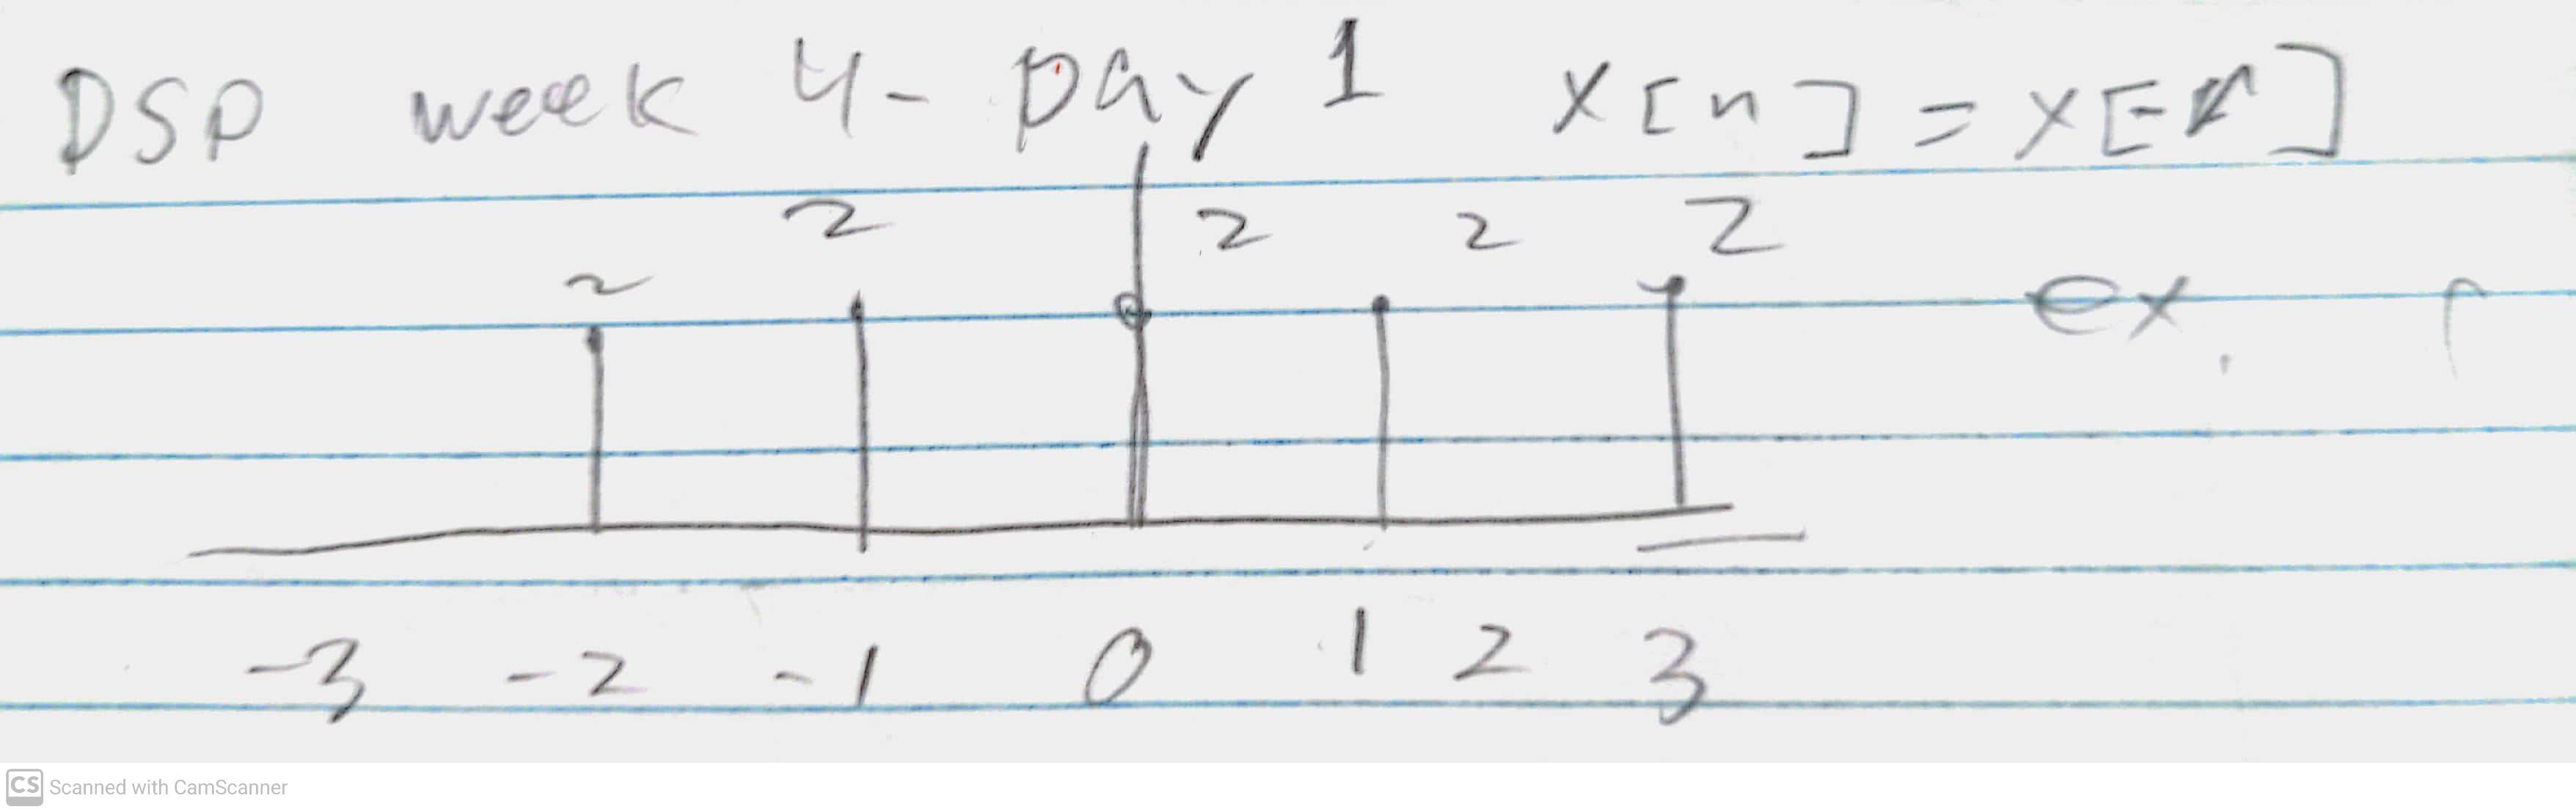 DSP week 4- Day 1 x[n] = x[-n]
2 2 2 2 2
ex.
-3 -2 -1 0 1 2 3
CS Scanned with CamScanner